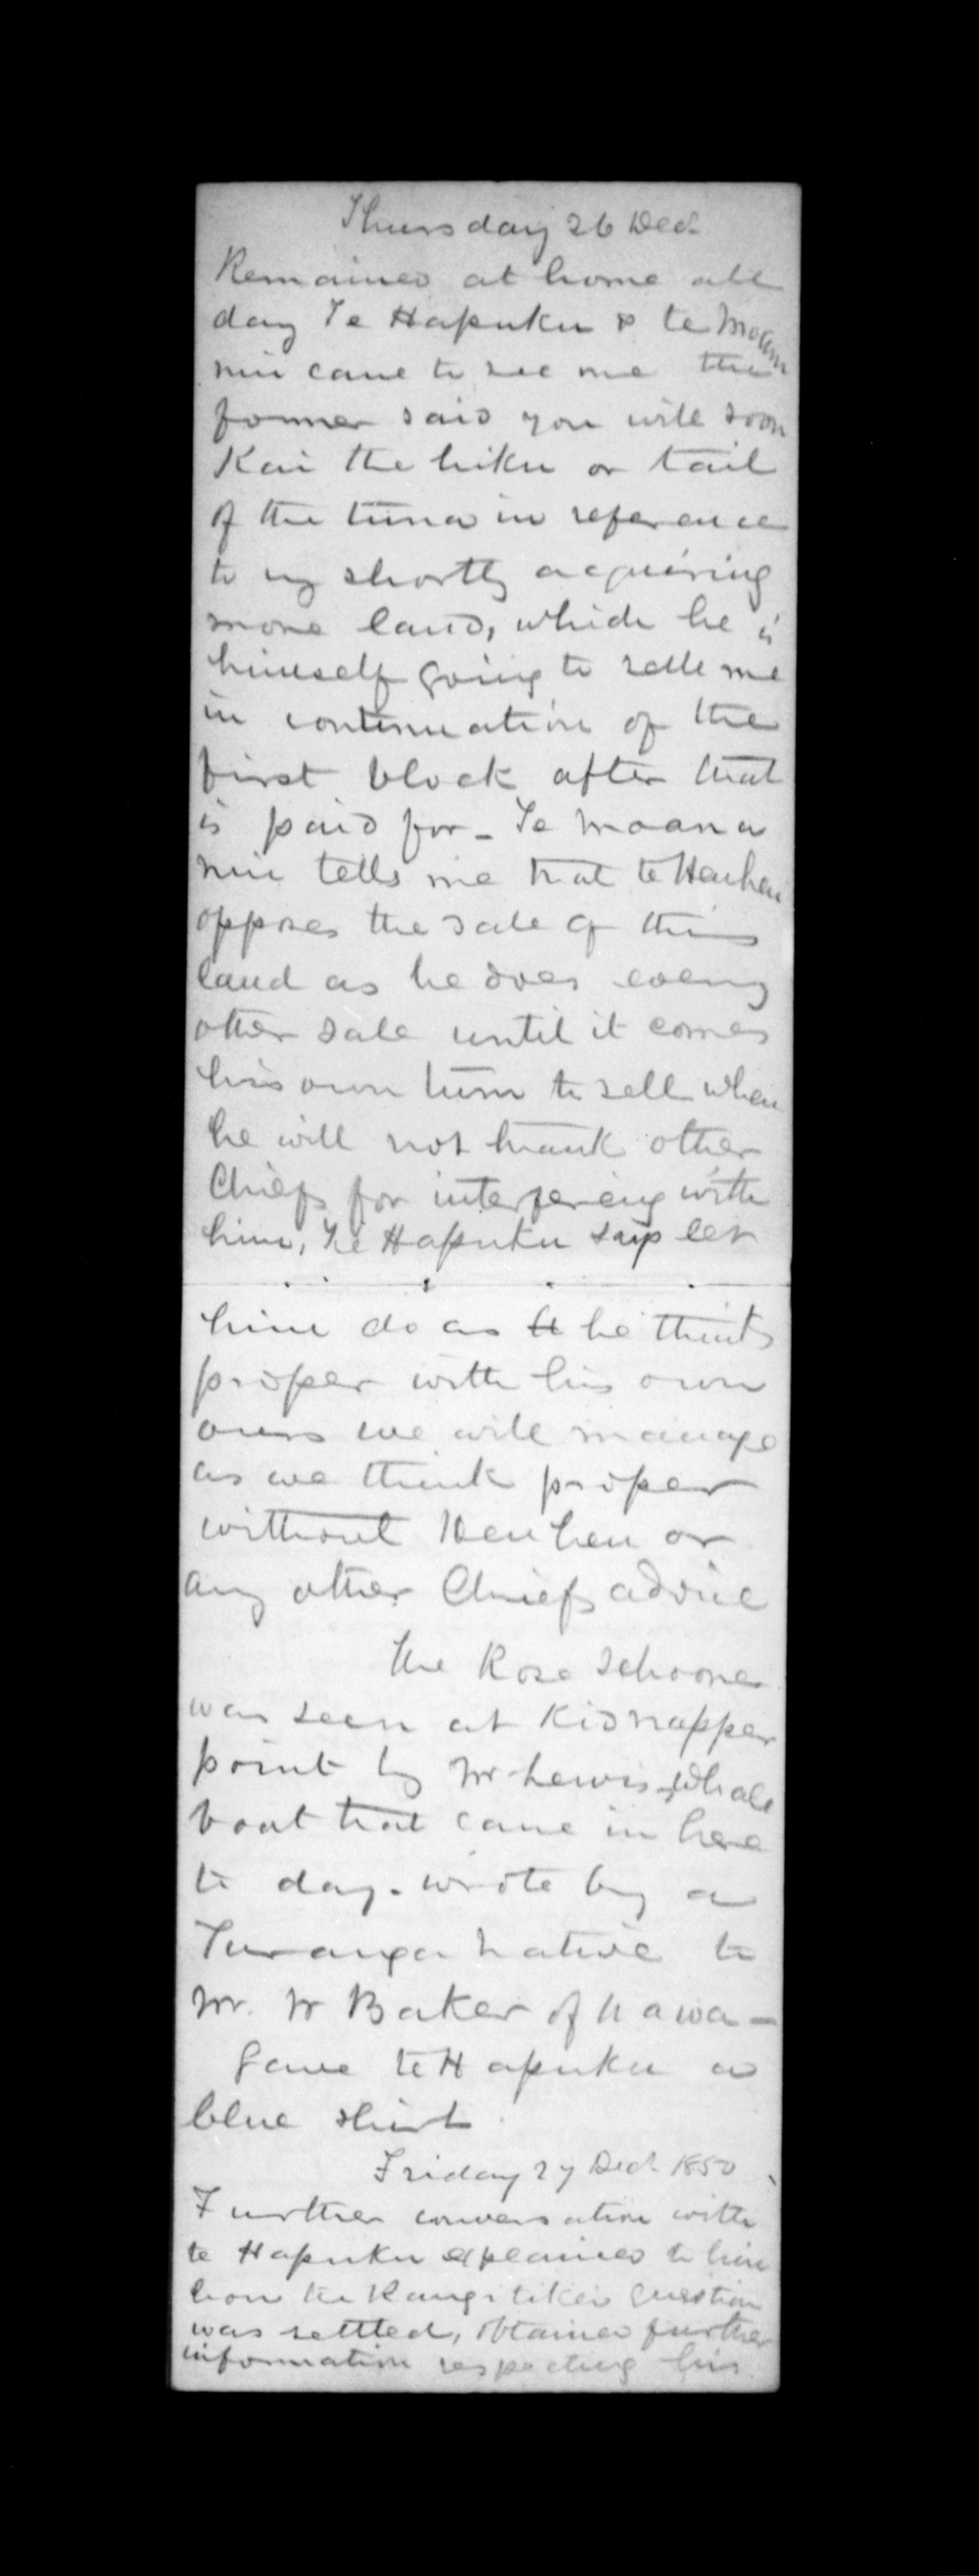 Thursday 26 Decr
Remained at home all
day Te Hapuku & te Moana
nui came to see me the
former said you will soon
Kai the hiku or tail
of the tuna in reference
to my shortly acquiring
more land, which he is
himself going to sell me
in continuation of the
first block after that
is paid for - Te Moana
nui tells me that te Heuheu
opposes the sale of this
land as he does every
other sale until it comes
his own turn to sell when
he will not thank other
Chiefs for interfering with
him, Te Hapuku says let
him do as he thinks
proper with his own
ours we will manage
as we think proper
without Heuheu or
any other Chiefs advice
The Rose Schooner
was seen at Kidnapper
point by Mr Lewis whale
boat that came in here
to day. wrote by a
Turanga native to
Mr. W Baker of nawa -
Gave te Hapuku a
blue shirt
Friday 27 Decr. 1850
Further conversation with
te Hapuku explained to him
how the Rangitikei question
was settled, obtained further
information respecting his